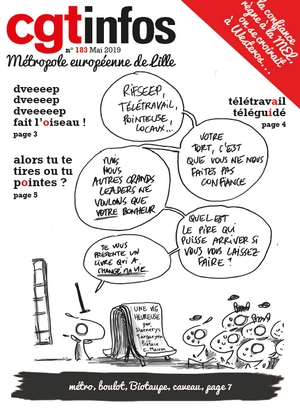 la confiance
règne à la MEL
on se croirait
à Westeros...
cgtinfos
n° 183 Mai 2019
Métropole européenne de Lille
dveeeep
dveeeep
dveeeep
fait l'oiseau !
page 3
alors tu te
tires ou tu
pointes ?
page 5
télétravail
téléguidé
page 4
RIFSEEP,
TÉLÉTRAVAIL,
POINTEUSE,
LOCAUX...
VOTRE
TORT, C'EST
QUE VOUS NE NOUS
FAITES PAS
CONFIANCE
MAIS
NOUS
AUTRES GRANDS
LEADERS NE
VOULONS QUE
VOTRE BONHEUR
QUEL EST
LE PIRE QUI
PUISSE ARRIVER SI
VOUS VOUS LAISSEZ
FAIRE ?
JE VOUS
PRÉSENTE UN
LIVRE QUI A
CHANGÉ MA VIE
UNE VIE
HEUREUSE
par
Daenerys
Targaryen
Préface
E. Macron
métro, boulot, Biotaupe, caveau, page 7